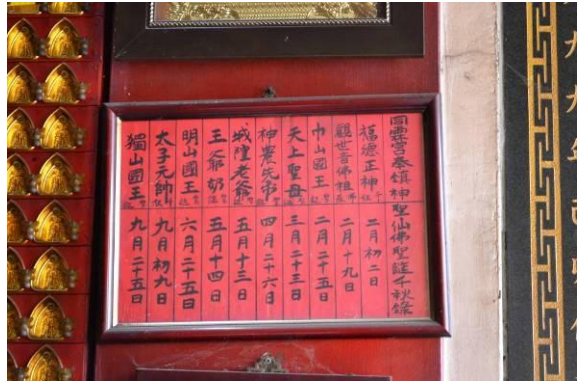 同霖宮奉鎮神聖仙佛聖誕千秋錄
福德正神 二月初二日
觀世音佛祖 二月十九日
巾山國王 二月二十五日
天上聖母 三月二十三日
神農先帝 四月二十六日
城隍老爺 五月十三日
王爺奶 五月十四日
明山國王 六月二十五日
太子元帥 九月初九日
獨山國王 九月二十五日
九九年己